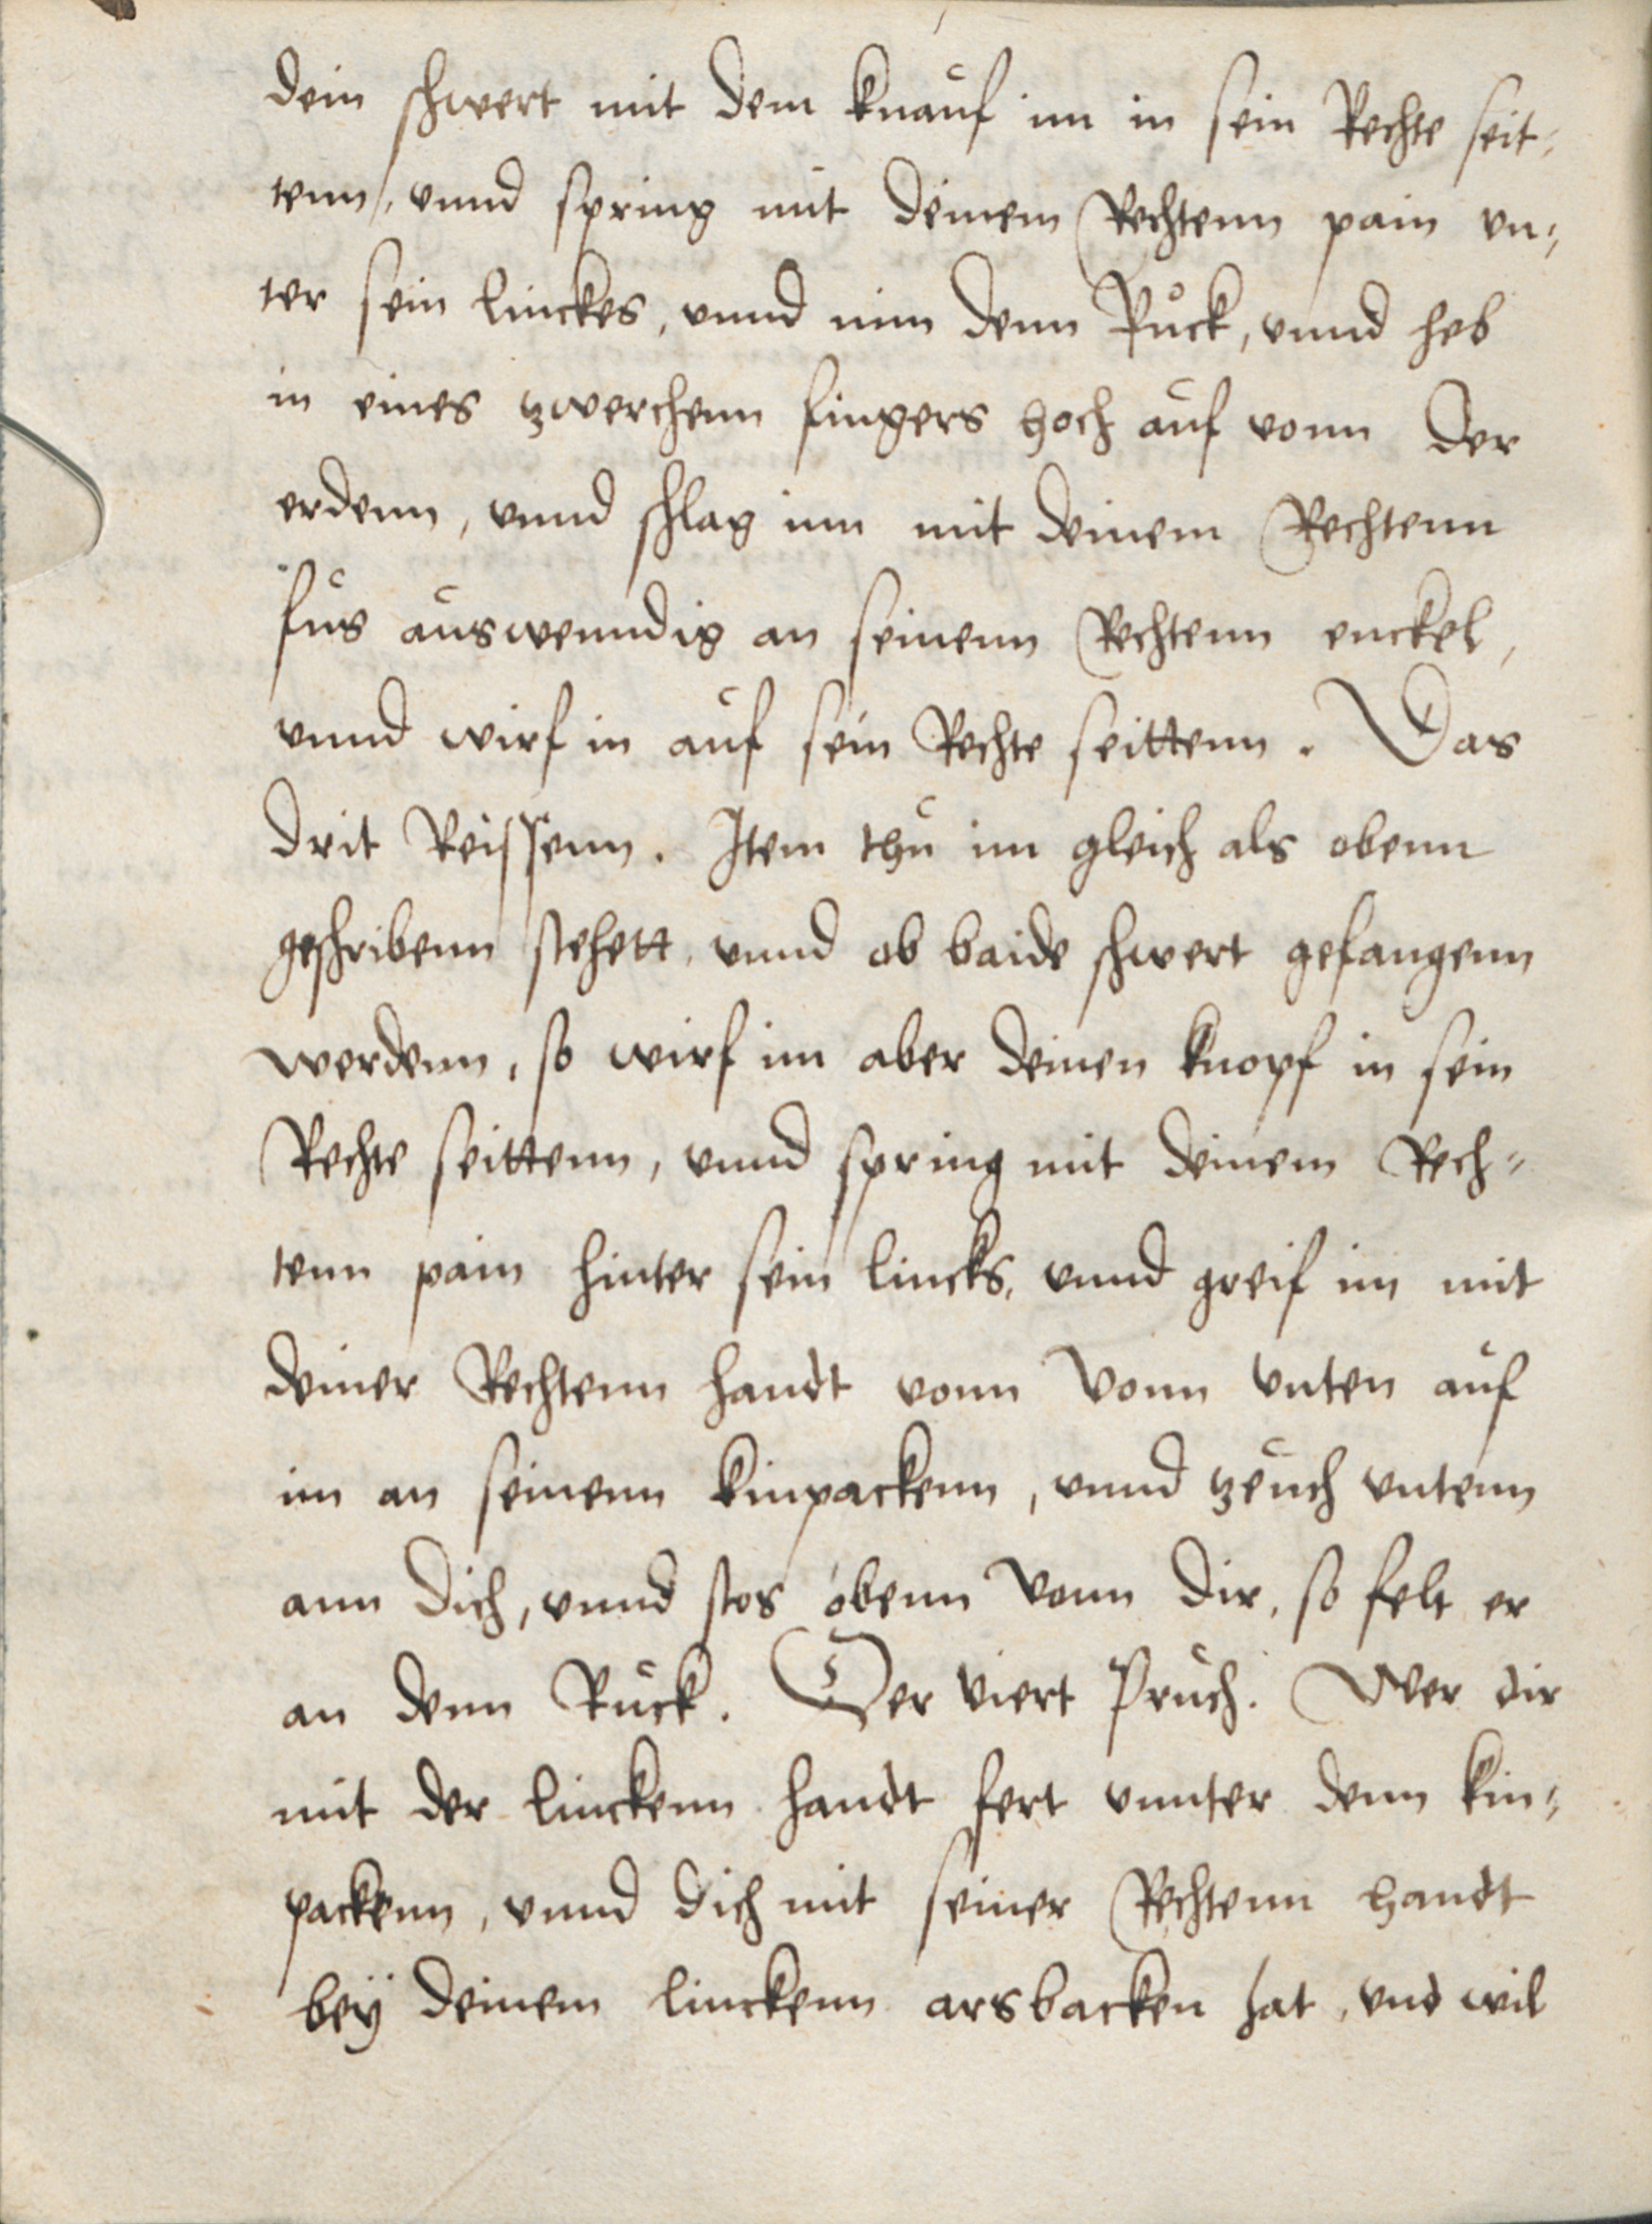 dein schwert mit dem knauf im in sein Rechte seit¬
tenn, vnnd spring mit deinem Rechtenn pain vn¬
ter sein linckes, vnnd nim denn Růck, vnnd heb
in eines zwerchenn fingers hoch auf vonn der
erdenn, vnnd schlag im mit deinem Rechtenn
fus auswenndig an seinenn Rechtenn enckel,
vnnd wirf in auf sein Rechte seittenn. Das
drit Reissenn. Item thu im gleich als obenn
geschribenn stehett, vnnd ob baide schwert gefangenn
werdenn, so wirf im aber deinen knopf in sein
Rechte seittenn, vnnd spring mit deinem Rech¬
tenn pain hinter sein lincks, vnnd greif im mit
deiner Rechtenn handt vonn vonn vnten auf
im an seinenn kinpackenn, vnnd zeuch vntenn
ann dich, vnnd stos obenn vonn dir, so felt er
an denn Ruck. Der viert Pruch. Wer dir
mit der linckenn handt fert vnnter denn kin¬
packenn, vnnd dich mit seiner Rechtenn handt
beÿ deinem linckenn arsbacken hat, vnd wil